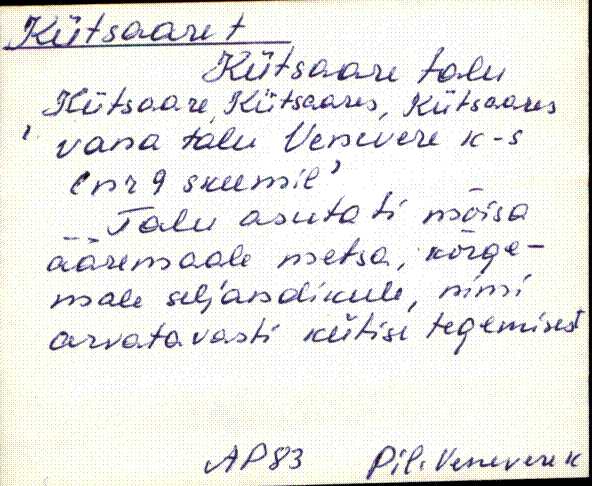 Kütsaare t
Kütsaare talu
Kütsaare, Kütsaares, Kütsaares
'vana talu Venevere k-s
(nr 9 skeemil'
Talu asutati mõisa
ääremaale metsa, kõrge-
male seljandikule, nimi
arvatavasti kütise tegemisest
AP83 Pil. Venevere k